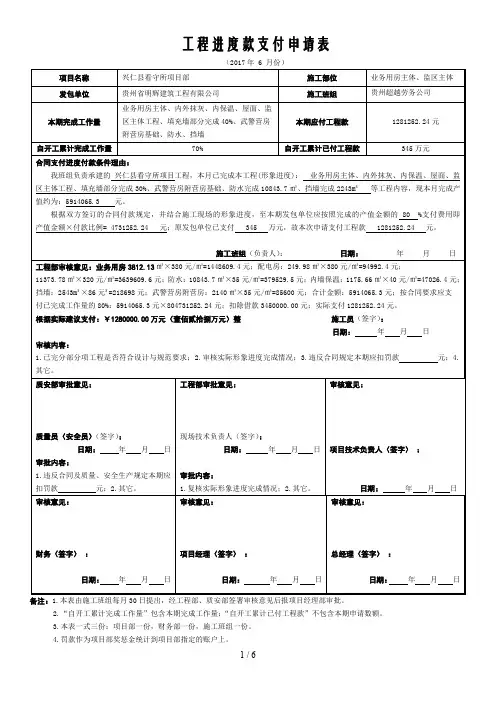 工程进度款支付申请表
（2017年 6 月份）
项目名称 兴仁县看守所项目部 施工部位 业务用房主体、监区主体
发包单位 贵州省明辉建筑工程有限公司 施工班组 贵州超越劳务公司
本期完成工作量 业务用房主体、内外抹灰、内保温、屋面、监
区主体工程、填充墙部分完成40%、武警营房
附营房基础、防水、挡墙 本期应付工程款 1281252.24元
自开工累计完成工作量 70% 自开工累计已付工程款 345万元
合同支付进度付款条件理由：
我班组负责承建的 兴仁县看守所项目工程，本月已完成本工程(形象进度)： 业务用房主体、内外抹灰、内保温、屋面、监
区主体工程、填充墙部分完成30%、武警营房附营房基础、防水完成10843.7㎡、挡墙完成2243m³ 等工程内容，现本月完成产
值约为：5914065.3 元。
根据双方签订的合同付款规定，并结合施工现场的形象进度，至本期发包单位应按照完成的产值金额的 80 %支付费用即
产值金额×付款比例= 4731252.24 元；原发包单位已支付 345 万元，故本次申请支付工程款 1281252.24 元。
施工班组(负责人)： 日期： 年 月 日
工程部审核意见：业务用房3812.13㎡×380元/㎡=1448609.4元；配电房：249.98㎡×380元/㎡=94992.4元；
11373.78㎡×320元/㎡=3639609.6元；防水：10843.7㎡×35元/㎡=379529.5元；内墙保温：1175.66㎡×40元/㎡=47026.4元；
挡墙：2543m³×86元³=218698元；武警营房附营房：2140㎡×35元/㎡=85600元；合计金额：5914065.3元；按合同要求应支
付已完成工作量的80%：5914065.3元×804731252.24元；扣除借款3450000.00元；实际支付1281252.24元。
根据实际建议支付：￥1280000.00万元（壹佰贰拾捌万元）整 施工员(签字)：
日期： 年 月 日
审核内容：
1.已完分部分项工程是否符合设计与规范要求；2.审核实际形象进度完成情况；3.违反合同规定本期应扣罚款 元；4.
其它。
质安部审批意见： 工程部审批意见： 审核意见：
质量员（安全员）(签字)： 现场技术负责人(签字)：
日期： 年 月 日 日期： 年 月 日 项目技术负责人（签字）：
审批内容： 审批内容：
1.违反合同及质量、安全生产规定本期应 1.复核实际形象进度完成情况；2.其它。 日期： 年 月 日
扣罚款 元；2.其它。
审核意见： 审核意见： 审核意见：
财务（签字）： 项目经理（签字）： 总经理（签字）：
日期： 年 月 日 日期： 年 月 日 日期： 年 月 日
备注：1.本表由施工班组每月30日提出，经工程部、质安部签署审核意见后报项目经理部审批。
2.“自开工累计完成工作量”包含本期完成工作量；“自开工累计已付工程款”不包含本期申请数额。
3.本表一式三份：项目部一份，财务部一份、施工班组一份。
4.罚款作为项目部奖惩金统计到项目部指定的账户上。
1 / 6